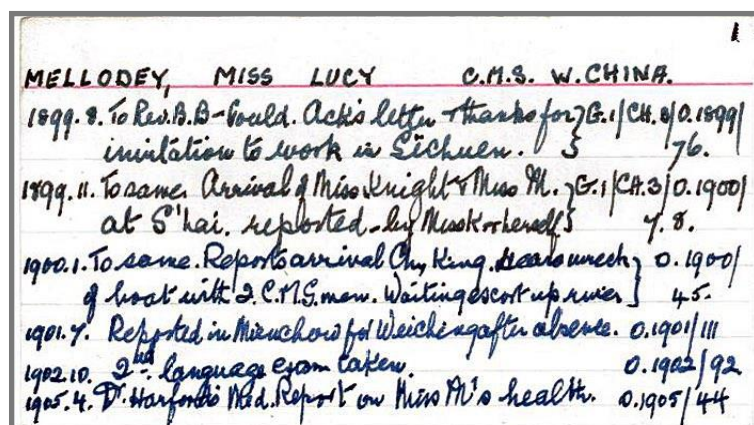 1
MELLODEY, MISS LUCY C.M.S. W.CHINA.
1899.8. To Rev. B. B-Gould. Ack's letter & thanks for } G.1/CH.3/0.1899/
invitation to work in Sichuen. } 76.
1899.11. To same. Arrival of Miss Knight & Miss M. } G.1/CH.3/0.1900/
at S'hai. reported - by Miss K & herself } 7. 8.
1900.1. To same. Reports arrival Chung King. Hears wreck } 0.1900/
of boat with 2 C.M.S. men. Waiting escort up river } 45.
1901.7. Reported in Mienchow for Weiching after absence. 0.1901/111
1902.10. 2nd. language exam taken. 0.1902/92
1905.4. Dr. Harford's Med. Report on Miss M's health. 0.1905/44